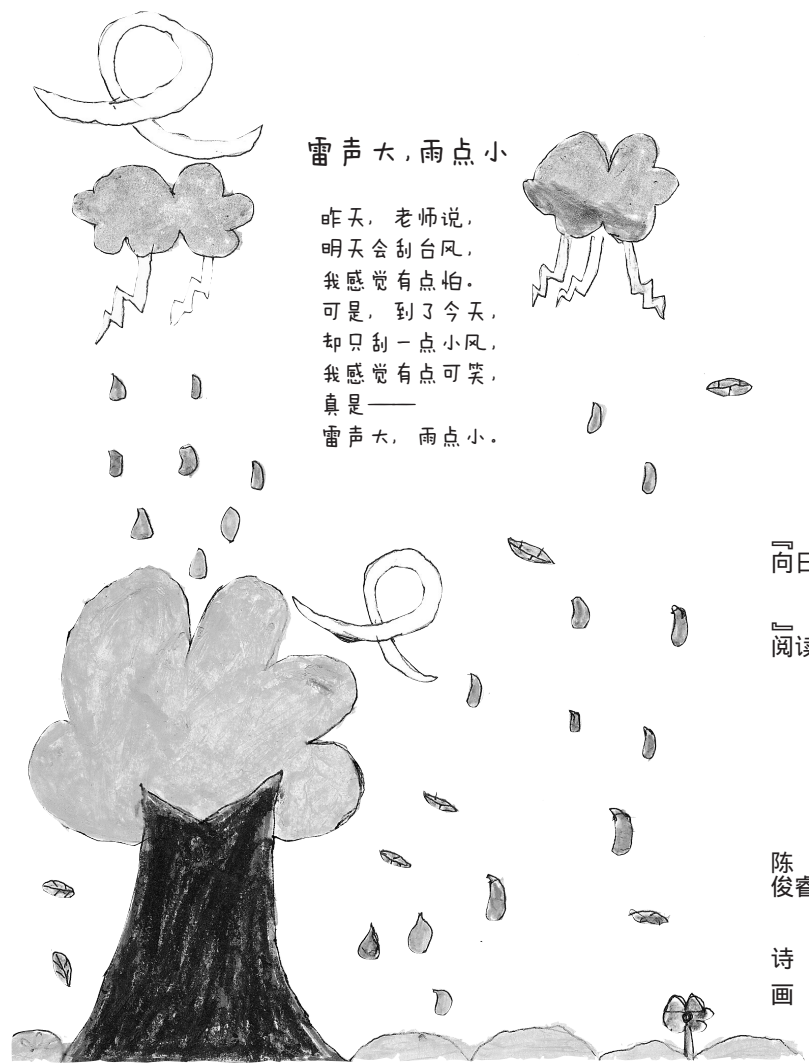 雷声大,雨点小
昨天, 老师说,
明天会刮台风,
我感觉有点怕。
可是, 到了今天,
却只刮一点小风,
我感觉有点可笑,
真是——
雷声大, 雨点小。
『向日
』阅读
陈俊睿
诗
画